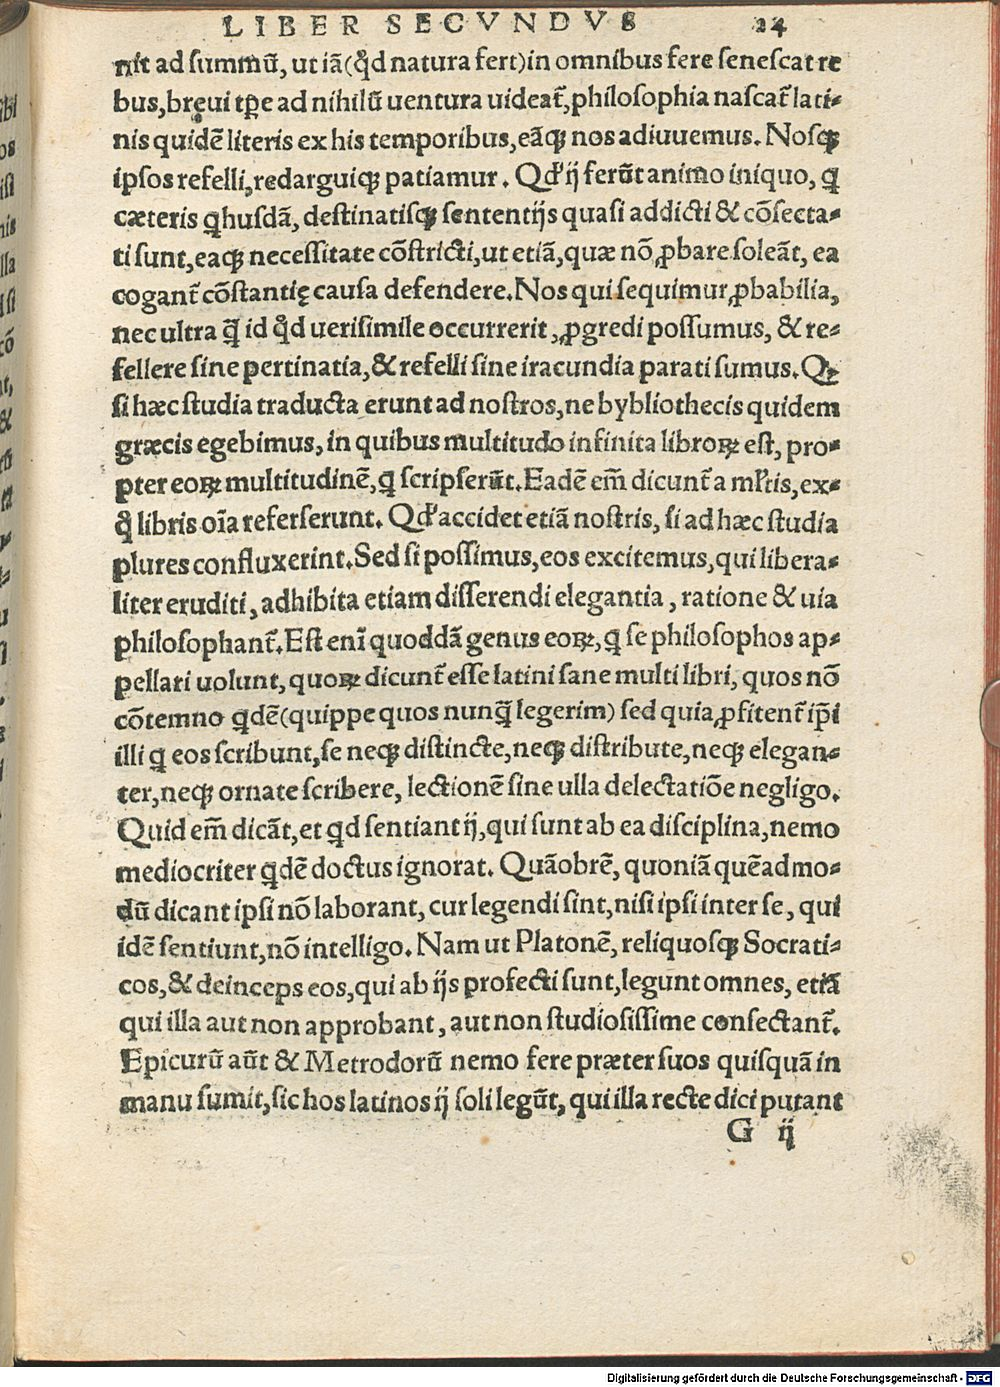 LIBER SECVNDVS 24
nit ad summū, ut iā(qd̛ natura fert)in omnibus fere senescat re
bus,breui tp̄e ad nihilū uentura uideat᷑,philosophia nascat᷑ lati-
nis quidē literis ex his temporibus,eāqꝫ nos adiuuemus. Nosqꝫ
ipsos refelli,redarguiqꝫ patiamur. Qd̛ ij ferūt animo iniquo, ꝗ
cæteris ꝗbusdā, destinatisqꝫ sententijs quasi addicti & cōsecta-
ti sunt,eaqꝫ necessitate cōstricti,ut etiā,quæ nō ꝓbare soleāt, ea
cogant᷑ cōstantię causa defendere.Nos qui sequimur ꝓbabilia,
nec ultra q̄ id qd̛ uerisimile occurrerit, ꝓgredi possumus, & re-
fellere sine pertinatia,& refelli sine iracundia parati sumus.Qꝫ
si hæc studia traducta erunt ad nostros,ne bybliothecis quidem
græcis egebimus,in quibus multitudo infinita libroꝝ est, pro-
pter eoꝝ multitudinē,ꝗ scripserūt.Eadē em̄ dicunt᷑ a ml̛tis,ex-
q̊ libris oīa referserunt. Qd̛ accidet etiā nostris, si ad hæc studia
plures confluxerint.Sed si possimus,eos excitemus,qui libera-
liter eruditi, adhibita etiam disserendi elegantia, ratione & uia
philosophant᷑.Est enī quoddā genus eoꝝ,ꝗ se philosophos ap-
pellari uolunt,quoꝝ dicunt᷑ esse latini sane multi libri, quos nō
cōtemno ꝗdē(quippe quos nunq̄ legerim) sed quia ꝓfitent᷑ ip̄i
illi ꝗ eos scribunt,se neqꝫ distincte,neqꝫ distribute,neqꝫ elegan-
ter,neqꝫ ornate scribere, lectionē sine ulla delectatiōe negligo.
Quid em̄ dicāt,et ꝗd sentiant ij,qui sunt ab ea disciplina,nemo
mediocriter ꝗdē doctus ignorat. Quāobrē, quoniā quēadmo-
dū dicant ipsi nō laborant, cur legendi sint,nisi ipsi inter se, qui
idē sentiunt,nō intelligo. Nam ut Platonē, reliquosqꝫ Socrati-
cos,& deinceps eos,qui ab ijs profecti sunt,legunt omnes, etiā
qui illa aut non approbant, aut non studiosissime consectant᷑.
Epicurū aūt & Metrodorū nemo fere præter suos quisquā in
manu sumit,sic hos latinos ij soli legūt, qui illa recte dici putant
G ij
Digitalisierung gefördert durch die Deutsche Forschungsgemeinschaft - DFG